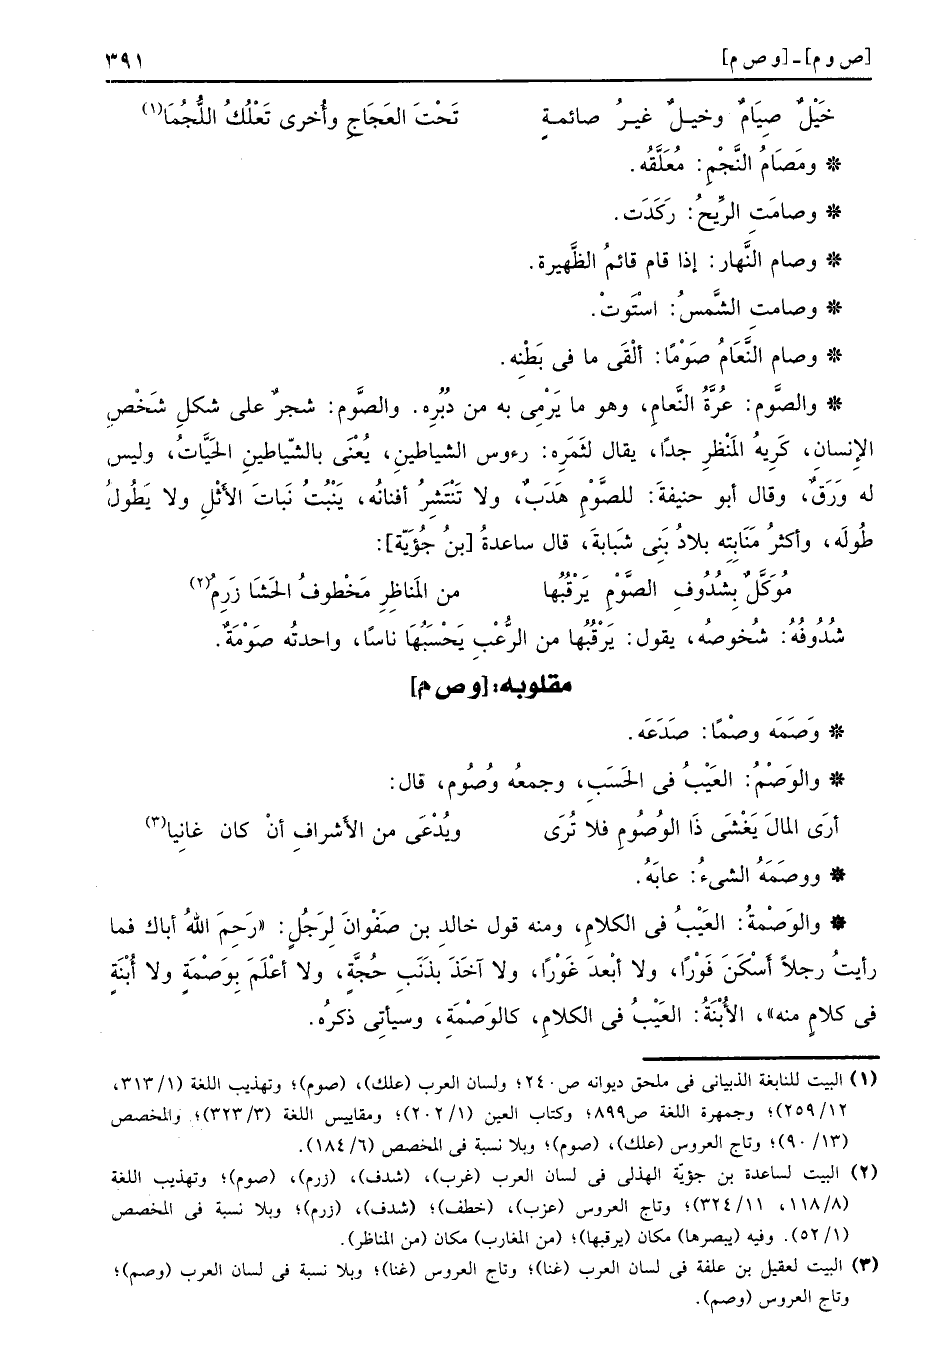 [ص و م] - [و ص م] ٣٩١
خَيْلٌ صِيَامٌ وخيـلٌ غيـرُ صائمـةٍ تَحْتَ العَجَاجِ وأُخرى تَعْلُكُ اللُّجُمَا(١)
* ومَصَامُ النَّجْمِ: مُعَلَّقُه.
* وصامَتِ الرِّيحُ: رَكَدَت.
* وصام النَّهار: إذا قام قائمُ الظَّهيرة.
* وصامتِ الشَّمسُ: استْوَتْ.
* وصام النَّعَامُ صَوْمًا: ألْقَى ما فى بَطْنِه.
* والصَّوم: عُرَّةُ النَّعامِ، وهو ما يَرْمِى به من دُبُرِه. والصَّوم: شجرٌ على شكلِ شَخْصِ
الإنسانِ، كَرِيهُ المَنْظرِ جدًا، يقال لثَمَرِه: رءوس الشياطين، يُعْنَى بالشّياطينِ الحَيَّاتُ، وليس
له وَرَقٌ، وقال أبو حنيفةَ: للصَّوْمِ هَدَبٌ، ولا تَنْتَشِرُ أفنانُه، يَنْبُتُ نَباتَ الأَثْلِ ولا يَطُولُ
طُولَه، وأكثرُ مَنَابِتِه بلادُ بَنِى شَبابةَ، قال ساعدةُ [بنُ جُؤَيّة]:
مُوَكَّلٌ بِشُدُوفِ الصَّوْمِ يَرْقُبُها من المَناظِرِ مَخْطوفُ الحَشَا زَرِمُ(٢)
شُدُوفُهُ: شُخوصُه، يقول: يَرْقُبُها من الرُّعْبِ يَحْسَبُهَا ناسًا، واحدتُه صَوْمَةٌ.
مقلوبه: [و ص م]
* وَصَمَه وصْمًا: صَدَعَه.
* والوَصْمُ: العَيْبُ فى الحَسَبِ، وجمعُه وُصُوم، قال:
أرَى المالَ يَغْشَى ذَا الوُصُومِ فلا تُرَى ويُدْعَى من الأشرافِ أنْ كان غانِيا(٣)
* ووصَمَهُ الشىءُ: عابَهُ.
* والوَصْمةُ: العَيْبُ فى الكلامِ، ومنه قول خالدِ بن صَفْوانَ لرَجُلٍ: «رَحِمَ اللهُ أباك فما
رأيتُ رجلاً أَسْكَنَ فَوْرًا، ولا أبْعدَ غَوْرًا، ولا آخَذَ بذَنَبِ حُجَّةٍ، ولا أعْلَمَ بوَصْمْةٍ ولا أُبْنَةٍ
فى كلامٍ منه»، الأُبْنَةُ: العَيْبُ فى الكلامِ، كالوَصْمَةِ، وسيأتِى ذكرُه.
(١) البيت للنابغة الذبيانى فى ملحق ديوانه ص٢٤٠؛ ولسان العرب (علك)، (صوم)؛ وتهذيب اللغة (٣١٣/١،
٢٥٩/١٢)؛ وجمهرة اللغة ص٨٩٩؛ وكتاب العين (٢٠٢/١)؛ ومقاييس اللغة (٣٢٣/٣)؛ والمخصص
(٩٠/١٣)؛ وتاج العروس (علك)، (صوم)؛ وبلا نسبة فى المخصص (١٨٤/٦).
(٢) البيت لساعدة بن جؤيّة الهذلى فى لسان العرب (غرب)، (شدف)، (زرم)، (صوم)؛ وتهذيب اللغة
(١١٨/٨، ٣٢٤/١١)؛ وتاج العروس (عزب)، (خطف)؛ (شدف)، (زرم)؛ وبلا نسبة فى المخصص
(٥٢/١). وفيه (يبصرها) مكان (يرقبها)؛ (من المغارب) مكان (من المناظر).
(٣) البيت لعقيل بن علفة فى لسان العرب (غنا)؛ وتاج العروس (غنا)؛ وبلا نسبة فى لسان العرب (وصم)؛
وتاج العروس (وصم).